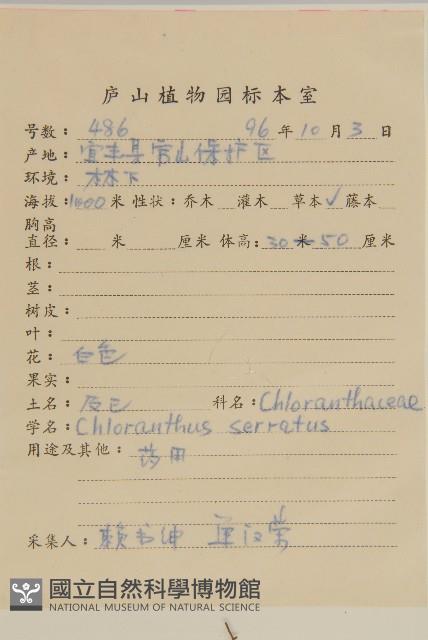 庐山植物园标本室
号数: 486 96年10月3日
产地: 宜丰县官山保护区
环境: 林下
海拔: 1000米 性状: 乔木 灌木 草本✓ 藤本
胸高
直径: 米 厘米 体高: 30米50厘米
根:
茎:
树皮:
叶:
花: 白色
果实:
土名: 及已 科名: Chloranthaceae
学名: Chloranthus serratus
用途及其他: 药用
采集人: 赖书坤
國立自然科學博物館
NATIONAL MUSEUM OF NATURAL SCIENCE